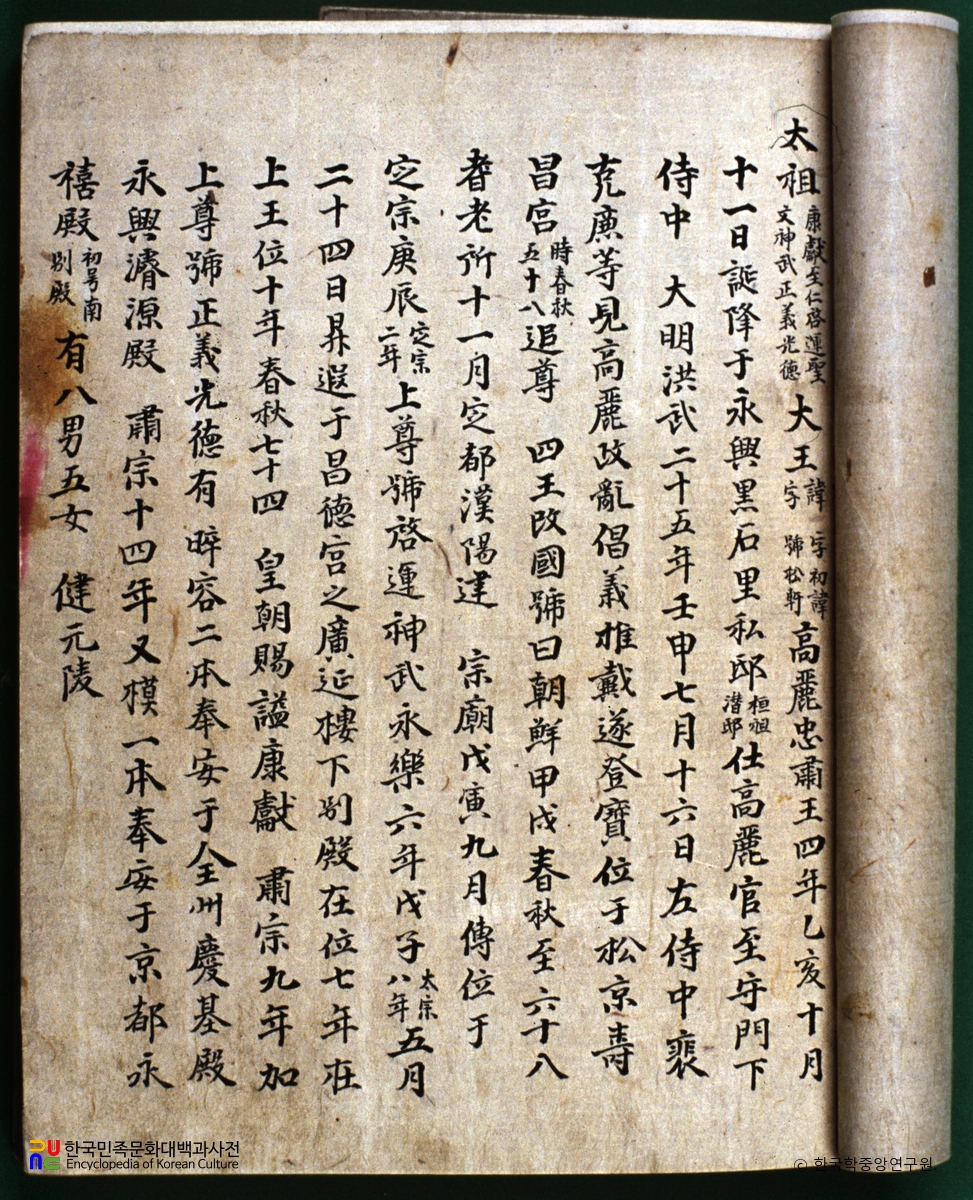 太祖康獻至仁啓運聖文神武正義光德大王諱字 字初諱號松軒高麗忠肅王四年乙亥十月
十一日誕降于永興黑石里私邸桓祖潛邸仕高麗官至守門下
侍中 大明洪武二十五年壬申七月十六日左侍中裵
克廉等見高麗政亂倡義推戴遂登寶位于松京壽
昌宮時春秋五十八追尊 四王改國號曰朝鮮甲戌春秋至六十八
耆老所十一月定都漢陽建 宗廟戊寅九月傳位于
定宗庚辰定宗二年上尊號啓運神武永樂六年戊子太宗八年五月
二十四日昇遐于昌德宮之廣延樓下別殿在位七年在
上王位十年春秋七十四 皇朝賜諡康獻 肅宗九年加
上尊號正義光德有睟容二本奉安于全州慶基殿
永興濬源殿 肅宗十四年又模一本奉安于京都永
禧殿初号南別殿有八男五女 健元陵
한국민족문화대백과사전
Encyclopedia of Korean Culture
© 한국학중앙연구원